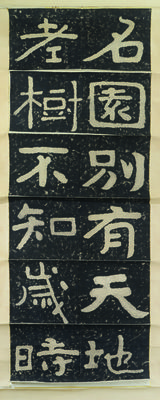 名園別有天地
老樹不知歲時